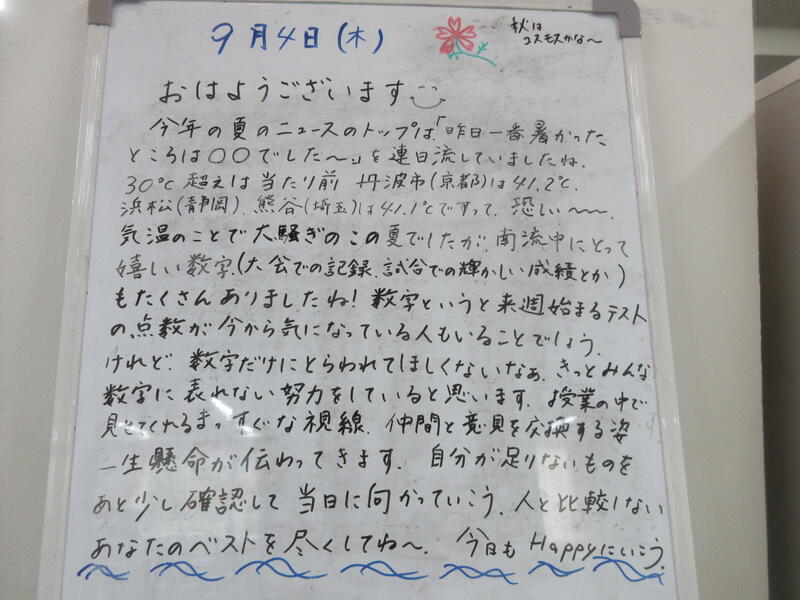 9月4日(木)
秋は
コスモスかな～
おはようございます
今年の夏のニュースのトップは「昨日一番暑かった
ところは〇〇でした～」を連日流していましたね.
30℃超えは当たり前 丹波市(京都)は41.2℃.
浜松(静岡). 熊谷(埼玉)は41.1℃ですって. 恐しい～～.
気温のことで大騒ぎのこの夏でしたが. 南流中にとって
嬉しい数字.(大会での記録.試合での輝かしい成績とか)
もたくさんありましたね! 数字というと来週始まるテスト
の点数が今から気になっている人もいることでしょう.
けれど. 数字だけにとらわれてほしくないなぁ. きっとみんな
数字に表れない努力をしていると思います. 授業の中で
見せてくれるまっすぐな視線. 仲間と意見を交換する姿
一生懸命が伝わってきます. 自分が足りないものを
あと少し確認して当日に向かっていこう. 人と比較しない
あなたのベストを尽くしてね～. 今日もHappyにいこう.